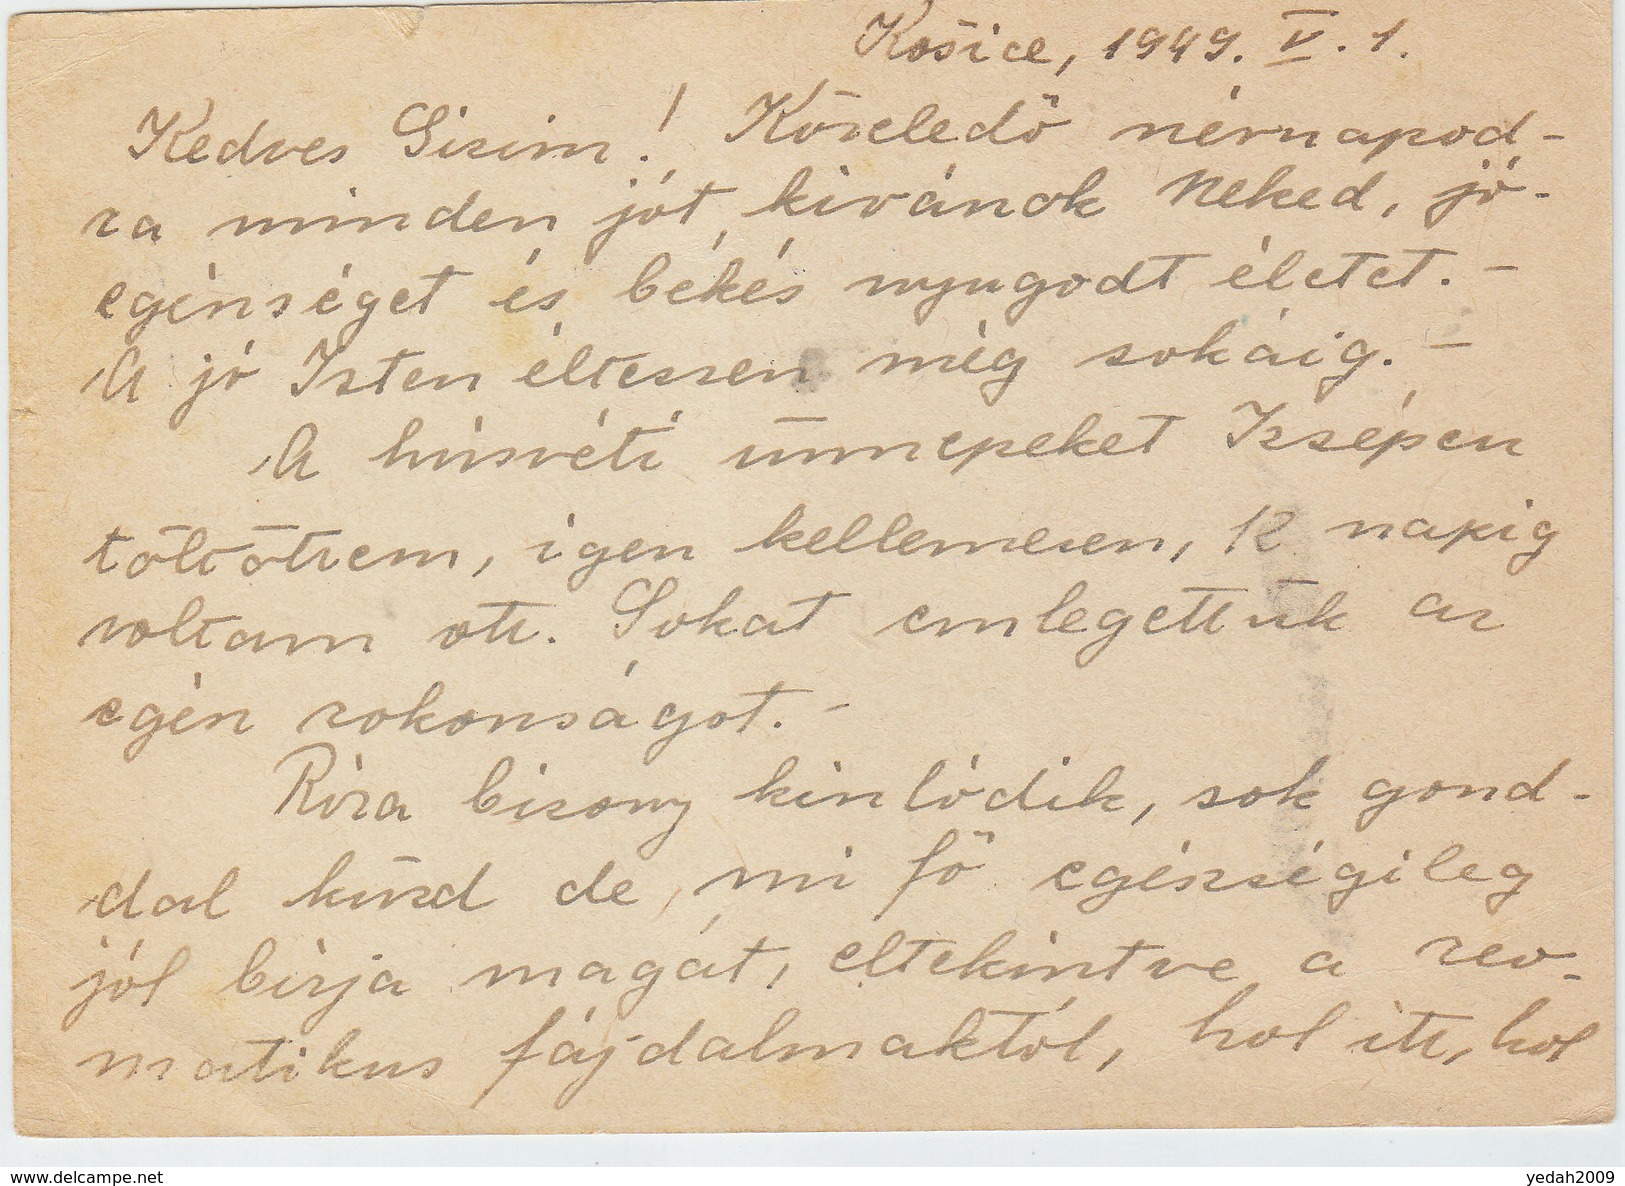 Košice, 1949. V. 1.
Kedves Sizim! Közeledő névnapod-
ra minden jót kivánok Neked, jó
egészséget és békés nyugodt életet. –
A jó Isten éltessen még sokáig. –
A húsvéti ünnepeket Izsépen
töltöttem, igen kellemesen, 12 napig
voltam ott. Sokat emlegettük az
egész rokonságot. –
Róza bizony kinlódik, sok gond-
dal küzd de, mi fő egészségileg
jól birja magát, eltekintve a reu-
matikus fájdalmaktól, hol itt, hol
yedah2009